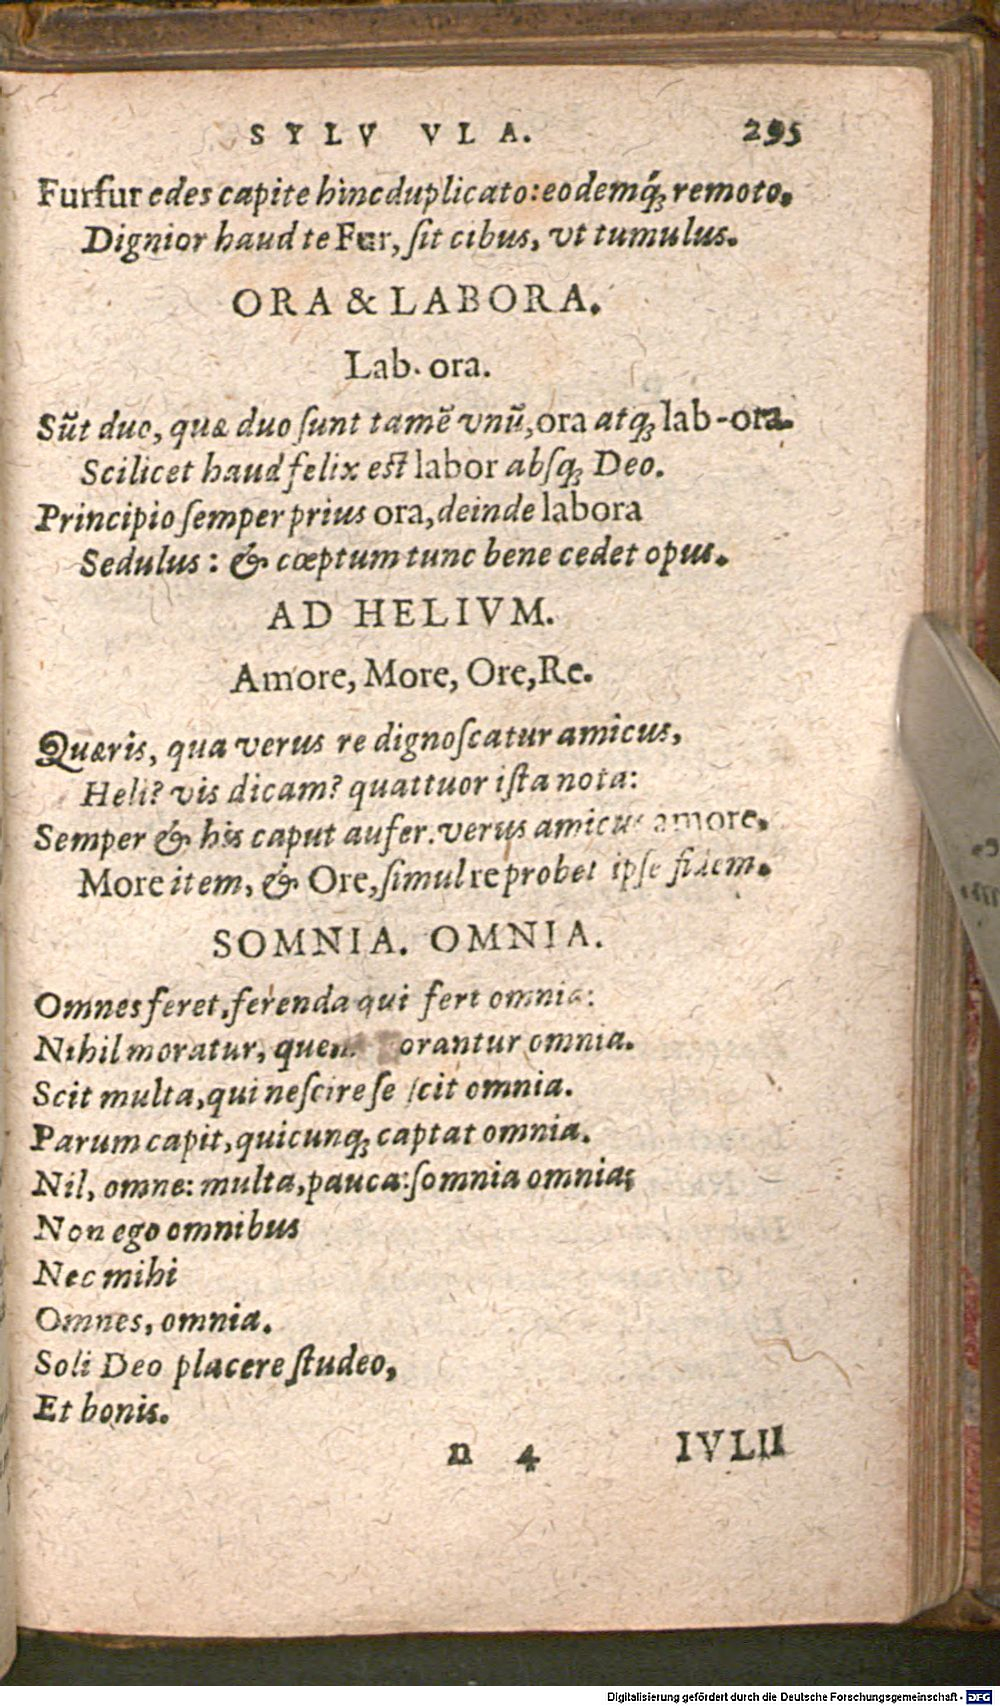 SYLV VLA. 295
Furfur edes capite hinc duplicato: eodemq́ꝫ remoto.
Dignior haud te Fur, ſit cibus, vt tumulus.
ORA & LABORA.
Lab. ora.
Sũt duo, quæ duo ſunt tamẽ vnũ, ora atqꝫ lab-ora.
Scilicet haud felix eſt labor abſqꝫ Deo.
Principio ſemper prius ora, deinde labora
Sedulus: & cœptum tunc bene cedet opus.
AD HELIVM.
Amore, More, Ore, Re.
Quæris, qua verus re dignoſcatur amicus,
Heli? vis dicam? quattuor iſta nota:
Semper & his caput aufer. verus amicus amore,
More item, & Ore, ſimul re probet ipſe fidem.
SOMNIA. OMNIA.
Omnes feret, ferenda qui fert omnia:
Nihil moratur, quem orantur omnia.
Scit multa, qui neſcire ſe ſcit omnia.
Parum capit, quicunqꝫ captat omnia.
Nil, omne: multa, pauca: ſomnia omnia:
Non ego omnibus
Nec mihi
Omnes, omnia.
Soli Deo placere ſtudeo,
Et bonis.
n 4 IVLII
Digitalisierung gefördert durch die Deutsche Forschungsgemeinschaft - DFG